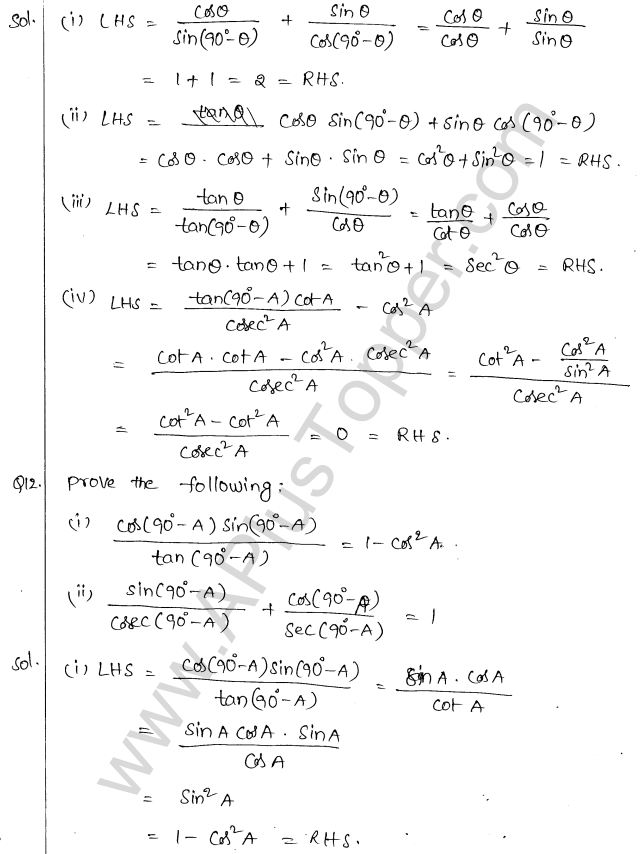 Sol. (i) LHS = cosθ/sin(90°-θ) + sinθ/cos(90°-θ) = cosθ/cosθ + sinθ/sinθ
= 1+1 = 2 = RHS.
(ii) LHS = tanθ cosθ sin(90°-θ) + sinθ cos(90°-θ)
= cosθ · cosθ + sinθ · sinθ = cos²θ + sin²θ = 1 = RHS.
(iii) LHS = tanθ/tan(90°-θ) + sin(90°-θ)/cosθ = tanθ/cotθ + cosθ/cosθ
= tanθ·tanθ + 1 = tan²θ + 1 = sec²θ = RHS.
(iv) LHS = tan(90°-A) cotA/cosec²A - cos²A
= (cotA · cotA - cos²A · cosec²A)/cosec²A = (cot²A - cos²A/sin²A)/cosec²A
= (cot²A - cot²A)/cosec²A = 0 = RHS.
Q12. Prove the following:
(i) cos(90°-A) sin(90°-A)/tan(90°-A) = 1 - cos²A.
(ii) sin(90°-A)/cosec(90°-A) + cos(90°-A)/sec(90°-A) = 1
Sol. (i) LHS = cos(90°-A) sin(90°-A)/tan(90°-A) = sinA · cosA/cotA
= sinA cosA · sinA/cosA
= sin²A
= 1 - cos²A = RHS.
www.APlusTopper.com